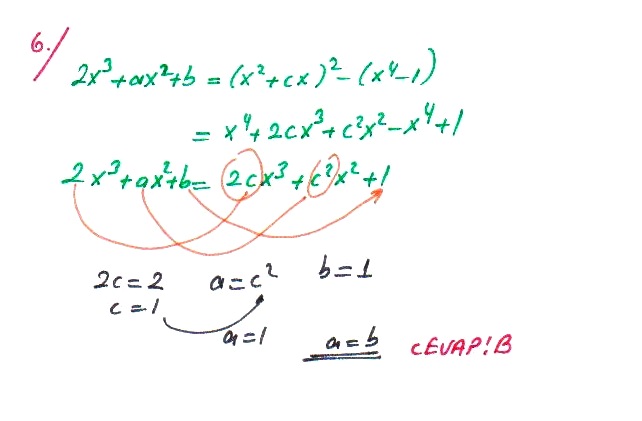 6./
2x³+ax²+b = (x²+cx)²-(x⁴-1)
= x⁴+2cx³+c²x²-x⁴+1
2x³+ax²+b= 2cx³+c²x²+1
2c=2 a=c² b=1
c=1
a=1 a=b CEVAP!B